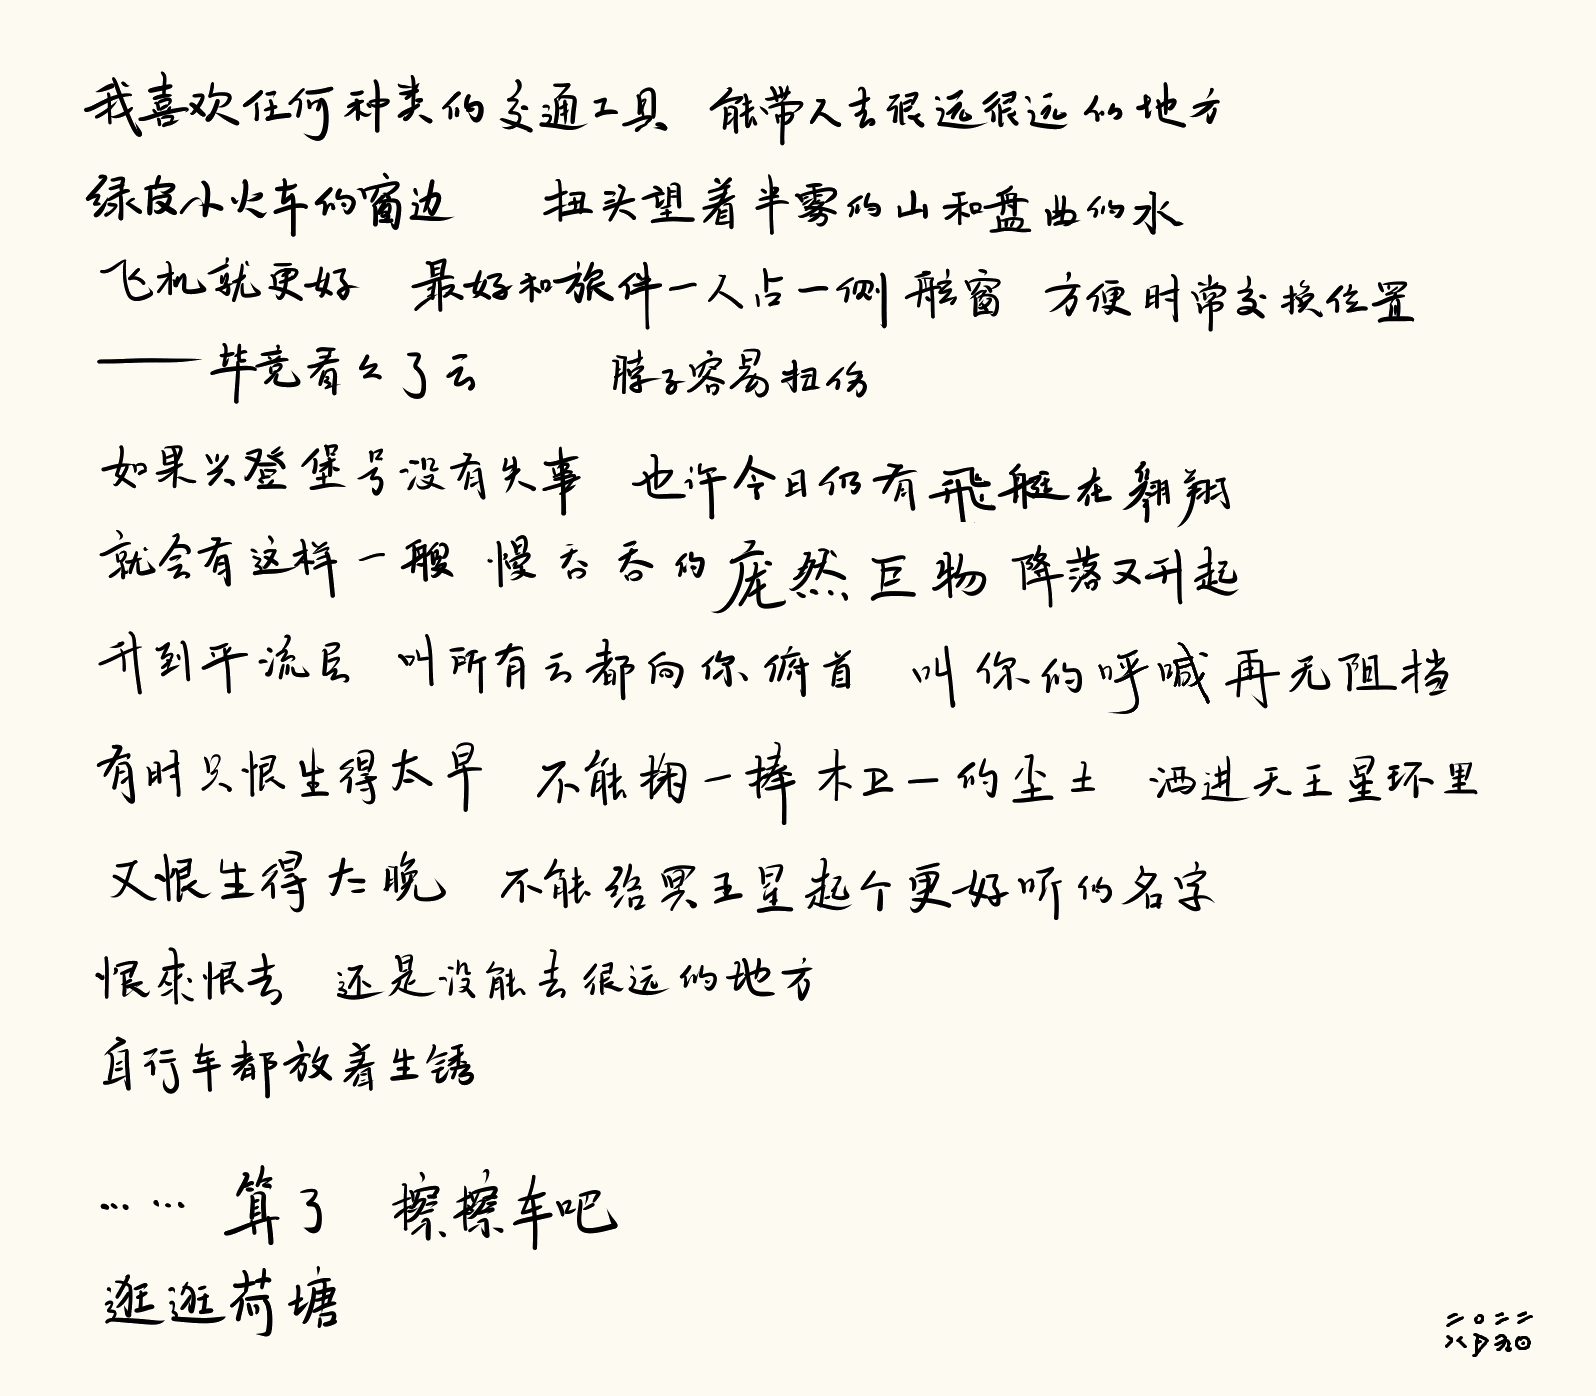 我喜欢任何种类的交通工具 能带人去很远很远的地方
绿皮小火车的窗边 扭头望着半雾的山和盘曲的水
飞机就更好 最好和旅伴一人占一侧舷窗 方便时常交换位置
——毕竟看久了云 脖子容易扭伤
如果兴登堡号没有失事 也许今日仍有飛艇在翱翔
就会有这样一艘 慢吞吞的庞然巨物 降落又升起
升到平流层 叫所有云都向你俯首 叫你的呼喊再无阻挡
有时只恨生得太早 不能掬一捧木卫一的尘土 洒进天王星环里
又恨生得太晚 不能给冥王星起个更好听的名字
恨来恨去 还是没能去很远的地方
自行车都放着生锈
…… 算了 擦擦车吧
逛逛荷塘
二〇二二